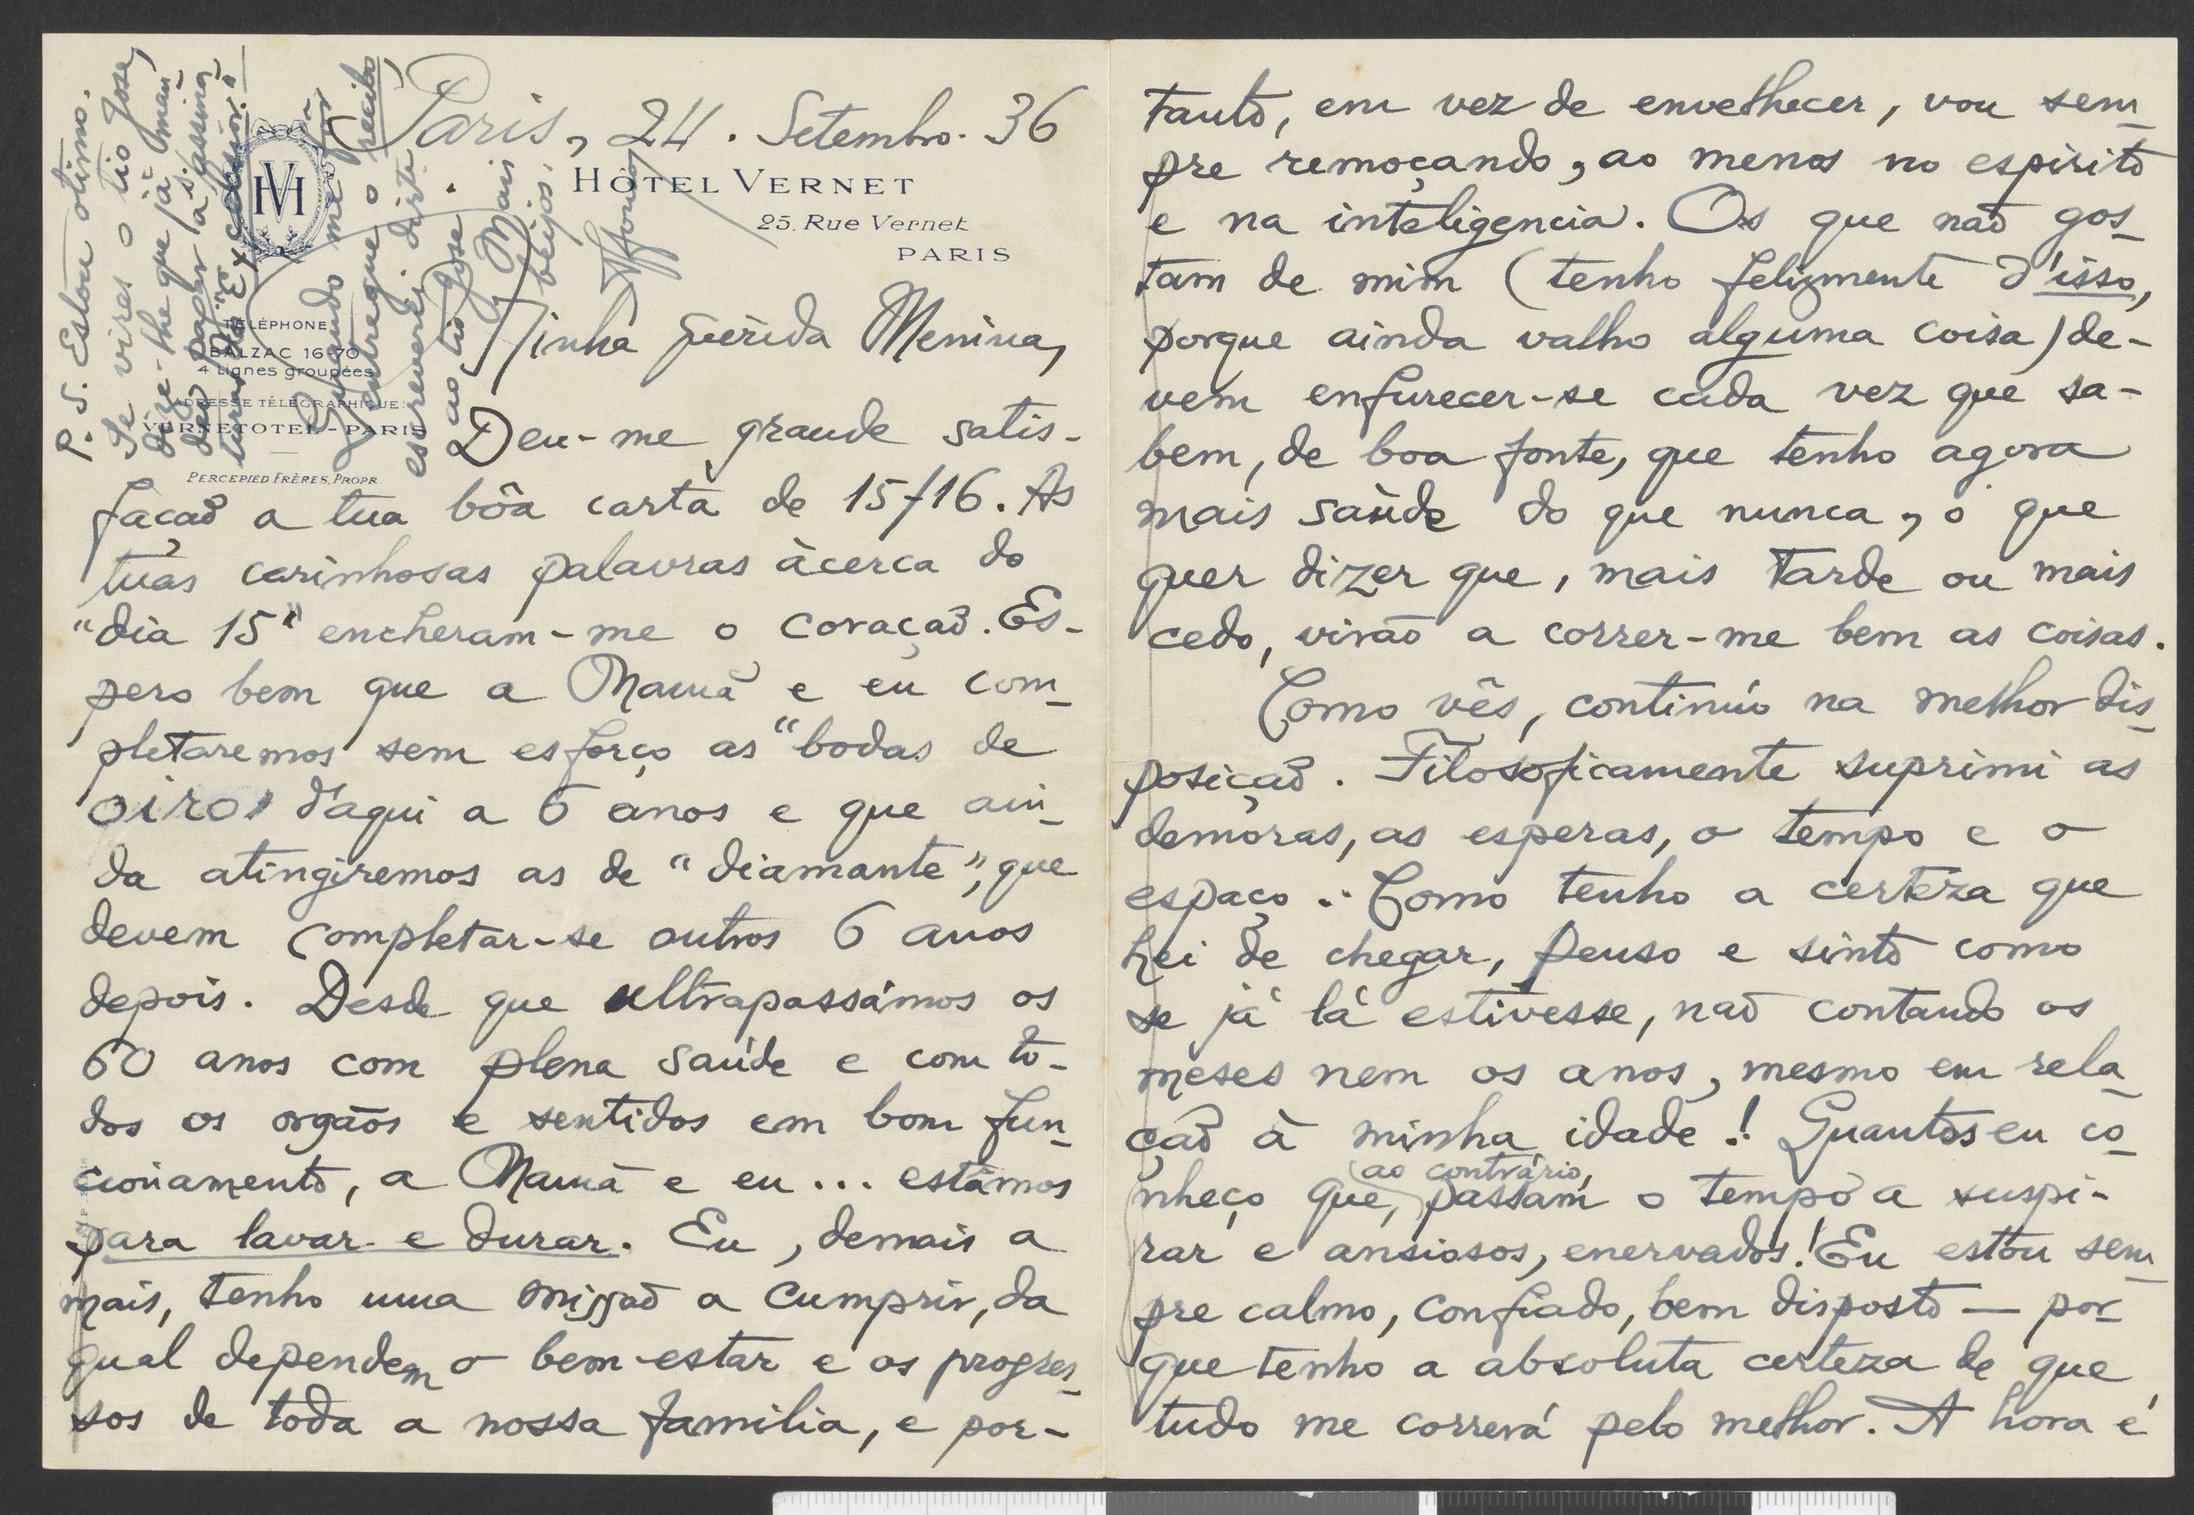 Paris, 24. Setembro. 36
HÔTEL VERNET
25, Rue Vernet
PARIS
TÉLÉPHONE
BALZAC 16-70
4 Lignes groupées
ADRESSE TÉLÉGRAPHIQUE:
VERNETOTEL-PARIS
PERCEPIED FRÈRES, PROPR.
Minha querida Menina,
Deu-me grande satis-
façaõ a tua bôa carta de 15/16. As
tuas carinhosas palavras àcerca do
"dia 15" encheram-me o coraçaõ. Es-
pero bem que a Mamã e eu com-
pletaremos sem esforço as "bodas de
oiro" d'aqui a 6 anos e que ain-
da atingiremos as de "diamante", que
devem completar-se outros 6 anos
depois. Desde que ultrapassámos os
60 anos com plena saúde e com to-
dos os orgãos e sentidos em bom fun-
cionamento, a Mamã e eu... estâmos
para lavar e durar. Eu, demais a
mais, tenho uma missaõ a cumprir, da
qual dependem o bem-estar e os progres-
sos de toda a nossa familia, e por-
tanto, em vez de envelhecer, vou sem-
pre remoçando, ao menos no espirito
e na inteligencia. Os que naõ gos-
tam de mim (tenho felizmente d'isso,
porque ainda valho alguma coisa) de-
vem enfurecer-se cada vez que sa-
bem, de boa fonte, que tenho agora
mais saùde do que nunca, o que
quer dizer que, mais tarde ou mais
cedo, virão a correr-me bem as coisas.
Como vês, continúo na melhor dis-
posiçaõ. Filosoficamente suprimi as
demoras, as esperas, o tempo e o
espaço.. Como tenho a certeza que
hei de chegar, penso e sinto como
se já lá estivesse, naõ contando os
meses nem os anos, mesmo em rela-
çaõ à minha idade! Quantos eu co-
nheço que, (ao contrário,) passam o tempo a suspi-
rar e ansiosos, enervados! Eu estou sem-
pre calmo, confiado, bem disposto — por-
que tenho a absoluta certeza de que
tudo me correrá pelo melhor. A hora é
P.S. Estou otimo.
Se vires o tio José,
dize-lhe que já man-
dei pagar as assina-
turas do "Excelsior".
Quando me fôr
entregue o recibo,
escreverei directe
ao tio José.
Mais
beijos,
Affonso